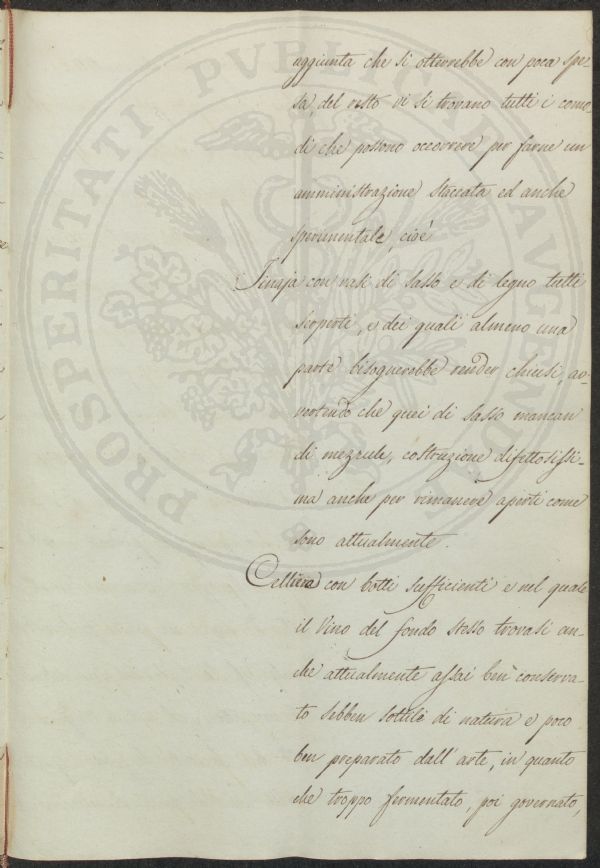 aggiunta che si otterrebbe con poca spe-
sa, del resto vi si trovano tutti i como-
di che possono occorrere per farne un
amministrazione staccata ed anche
sperimentale, cioè
Tinaja con vasi di sasso e di legno tutti
scoperti, e dei quali almeno una
parte bisognerebbe render chiusi, av-
vertendo che quei di sasso mancan
di mezzule, costruzione difettosissi-
ma anche per rimanere aperti come
sono attualmente.
Celliere con botti sufficienti e nel quale
il Vino del fondo stesso trovasi an-
che attualmente assai ben conserva-
to sebben sottile di natura e poco
ben preparato dall'arte, in quanto
che troppo fermentato, poi governato,
PROSPERITATI PUBLICAE AUGENDAE